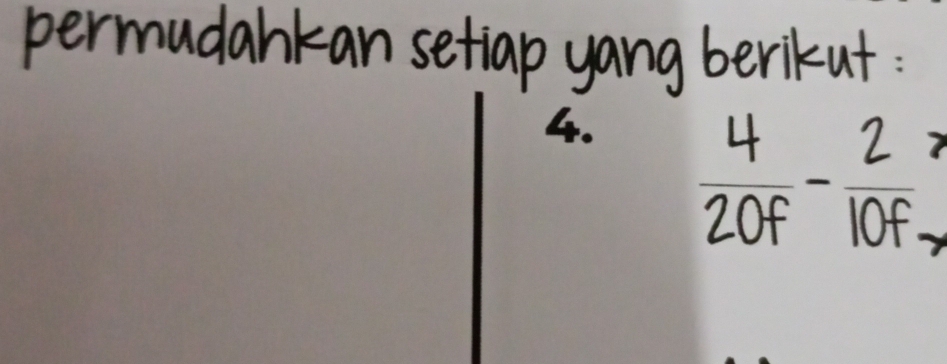 permudahkan setiap yang berikut :
4. 4/20f - 2/10f